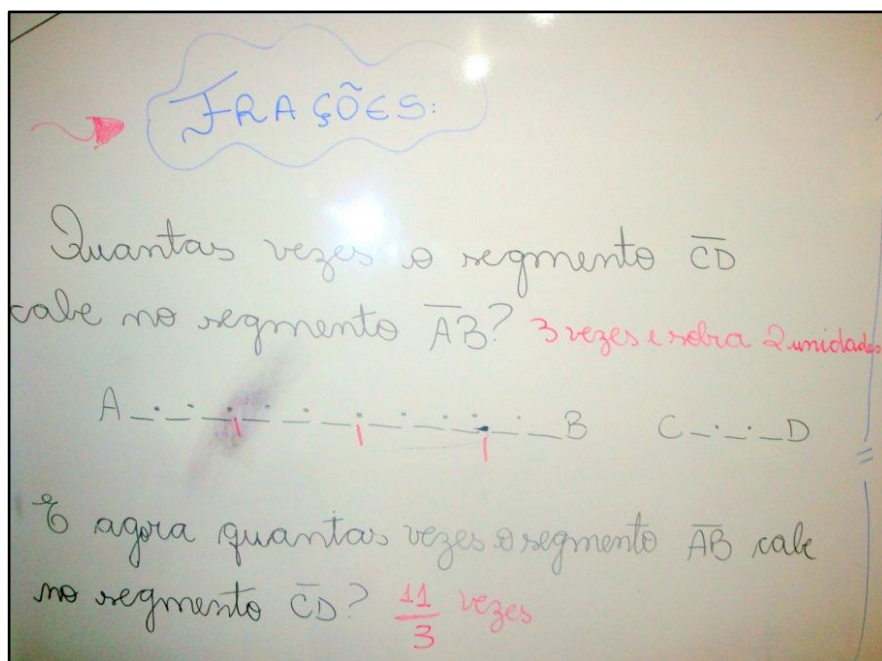 FRAÇÕES:
Quantas vezes o segmento C̅D̅
cabe no segmento A̅B̅? 3 vezes e sobra 2 unidades
A B C D
E agora quantas vezes o segmento A̅B̅ cabe
no segmento C̅D̅? 11/3 vezes